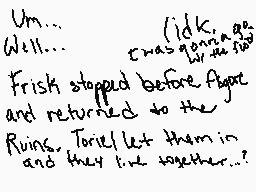 Um...
Well...
(idk,
I was gonna go
w/ the flow
Frisk stopped before Asgore
and returned to the
Ruins. Toriel let them in
and they live together...?